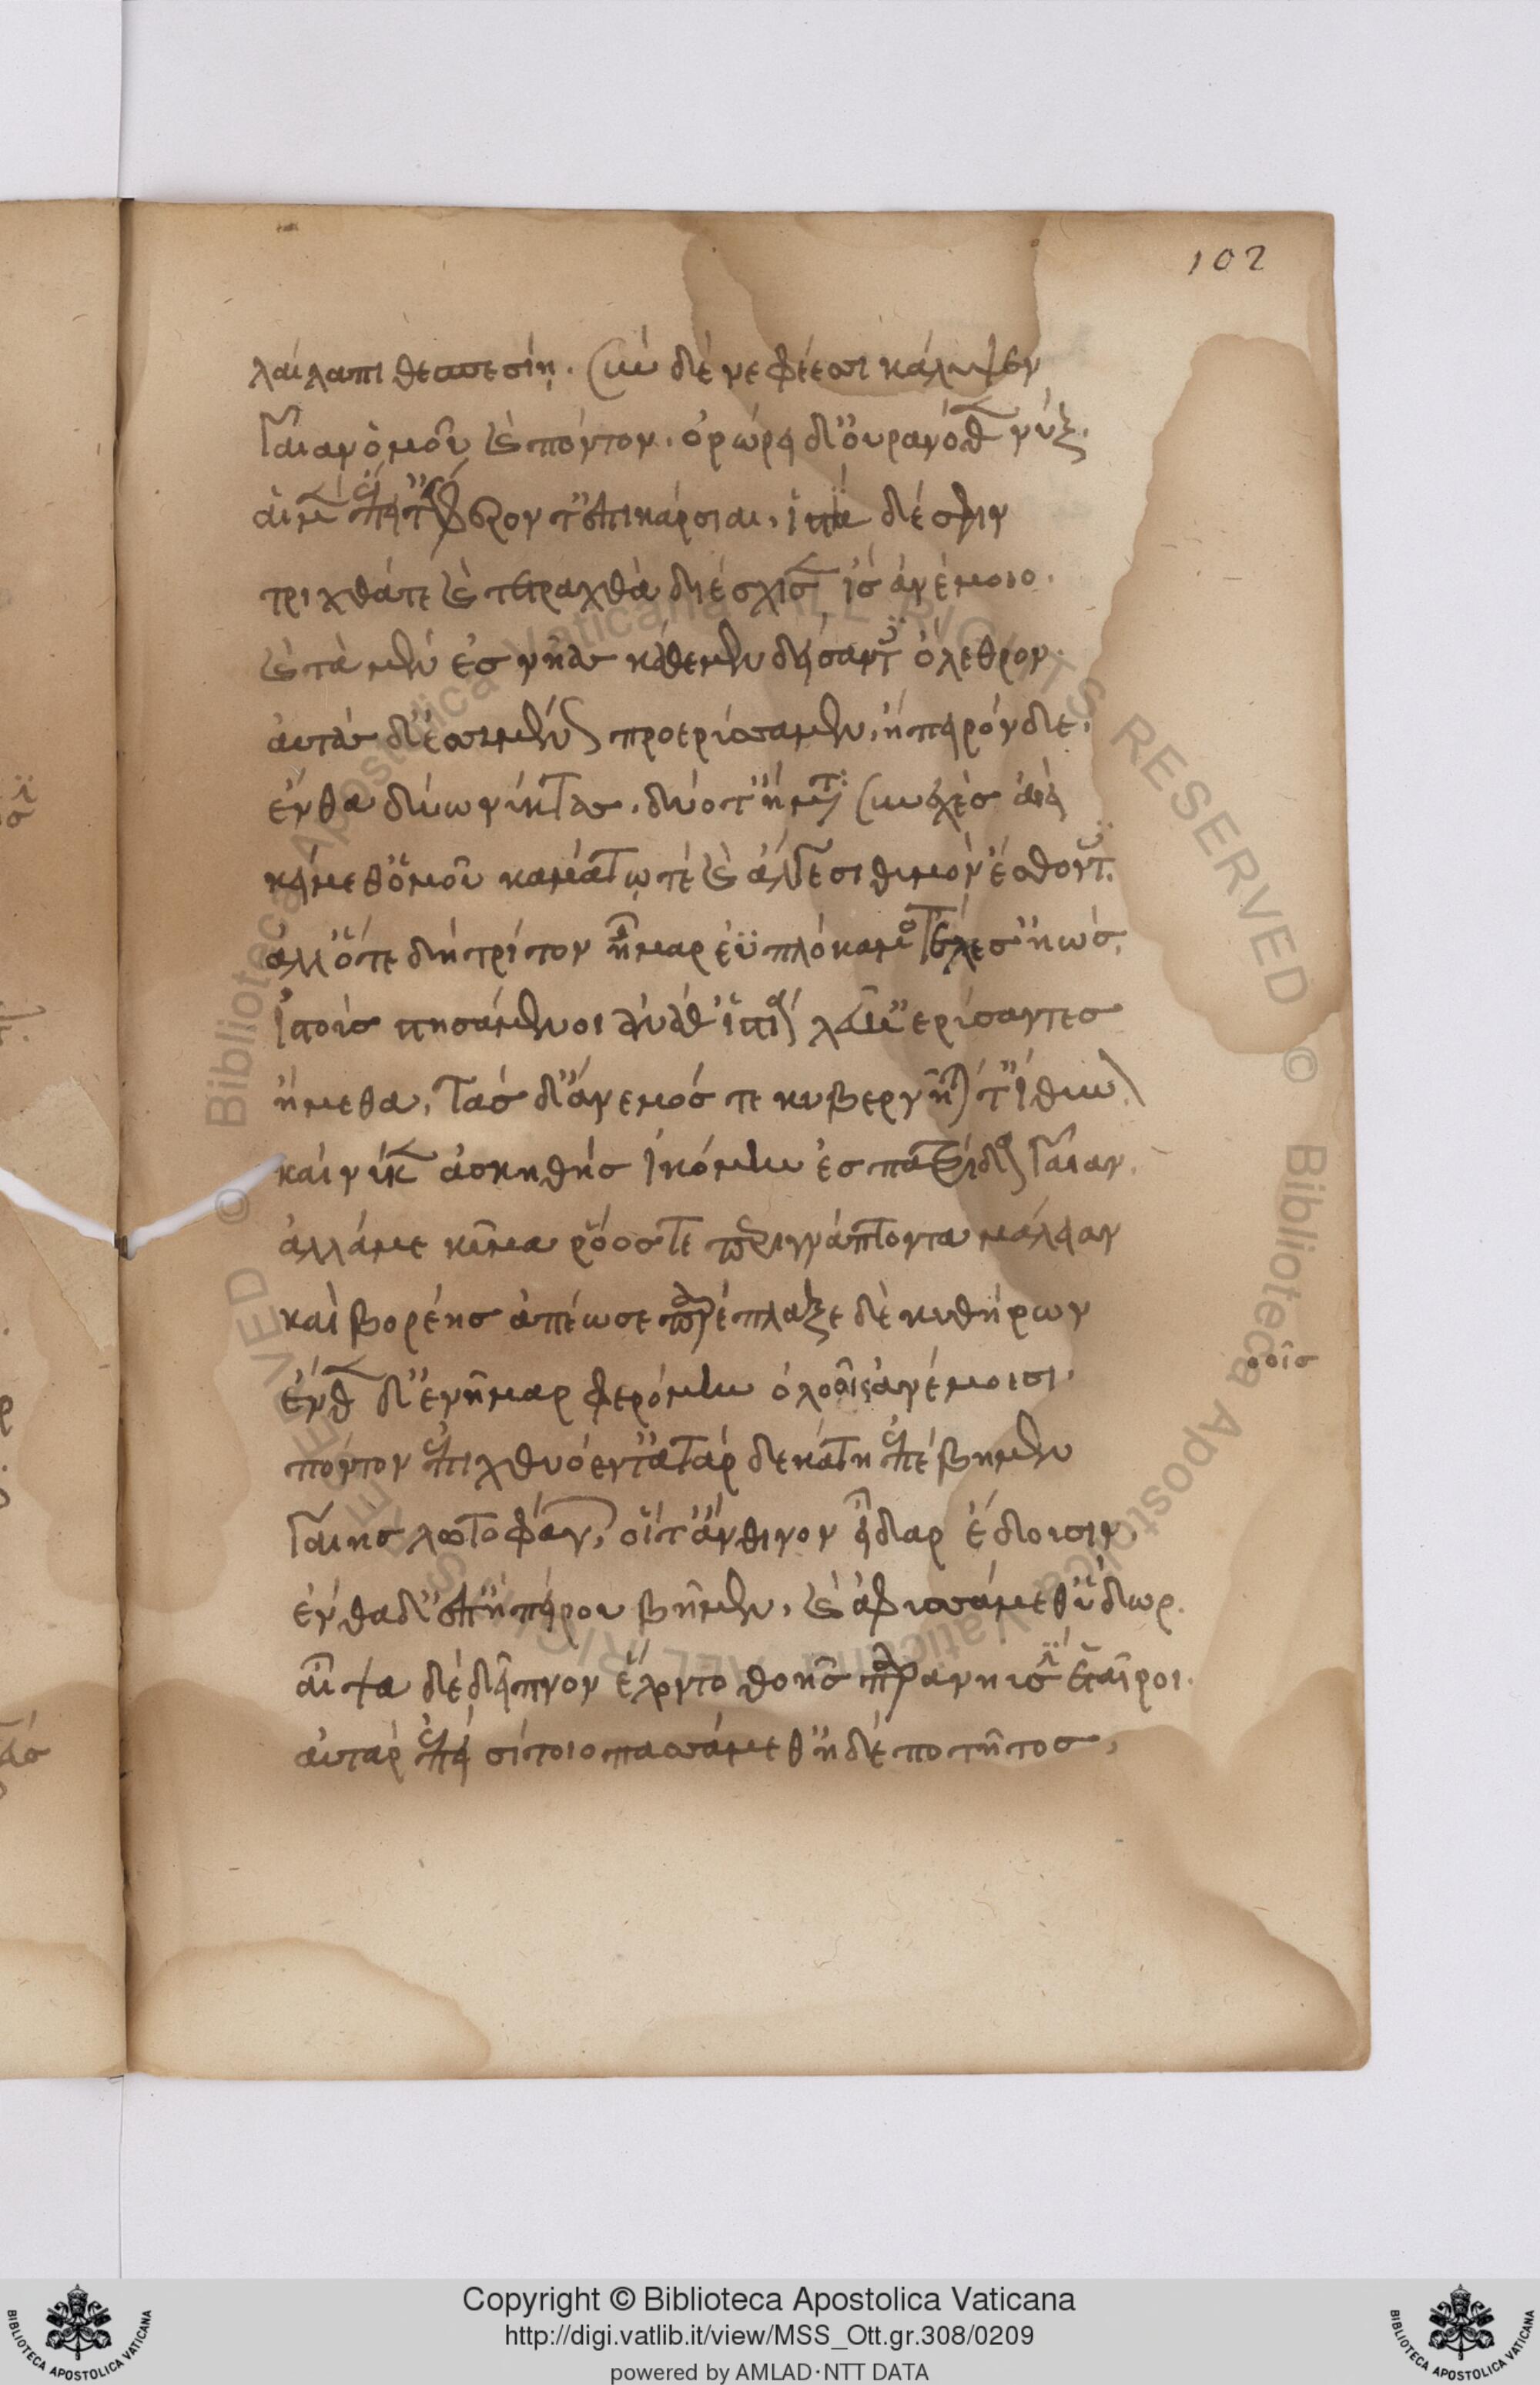 102
λαίλαπι θεσπεσίη. σὺν δὲ νεφέεσσι κάλυψεν
γαῖαν ὁμοῦ καὶ πόντον. ὀρώρει δ' οὐρανόθεν νύξ.
αἱ μὲν ἔπειτ' ἐφέροντ' ἐπικάρσιαι. ἱστία δέ σφιν
τριχθά τε καὶ τετραχθὰ διέσχισεν ἲς ἀνέμοιο.
καὶ τὰ μὲν ἐς νῆας κάθεμεν δείσαντες ὄλεθρον.
αὐτὰς δ' ἐσσυμένως προερύσσαμεν ἤπειρόνδε.
ἔνθα δύω νύκτας. δύο τ' ἤματα συνεχὲς αἰεὶ
κείμεθ' ὁμοῦ καμάτω τε καὶ ἄλγεσι θυμὸν ἔδοντες.
ἀλλ' ὅτε δὴ τρίτον ἦμαρ ἐϋπλόκαμος τέλεσ' ἠώς.
ἱστοὺς στησάμενοι ἀνά θ' ἱστία λεύκ' ἐρύσαντες
ἥμεθα. τὰς δ' ἄνεμός τε κυβερνῆταί τ' ἴθυνον.
καί νύ κεν ἀσκηθὴς ἱκόμην ἐς πατρίδα γαῖαν.
ἀλλά με κῦμα ῥόος τε περιγνάπτοντα μάλειαν
καὶ βορέης ἀπέωσε παρέπλαξε δὲ κυθήρων
ἔνθεν δ' ἐννῆμαρ φερόμην ὀλοοῖς ἀνέμοισι.
οοῖσ
πόντον ἐπ' ἰχθυόεντ' ἀτὰρ δεκάτη ἐπέβημεν
γαίης λωτοφάγων, οἵ τ' ἄνθινον εἶδαρ ἔδουσιν.
ἔνθα δ' ἐπ' ἠπείρου βῆμεν, καὶ ἀφυσσάμεθ' ὕδωρ.
αἶψα δὲ δεῖπνον ἕλοντο θοῆς παρὰ νηυσὶν ἑταῖροι.
αὐτὰρ ἐπεὶ σίτοιο πασσάμεθ' ἠδὲ ποτῆτος,
Copyright © Biblioteca Apostolica Vaticana
http://digi.vatlib.it/view/MSS_Ott.gr.308/0209
powered by AMLAD·NTT DATA
BIBLIOTECA APOSTOLICA VATICANA
BIBLIOTECA APOSTOLICA VATICANA